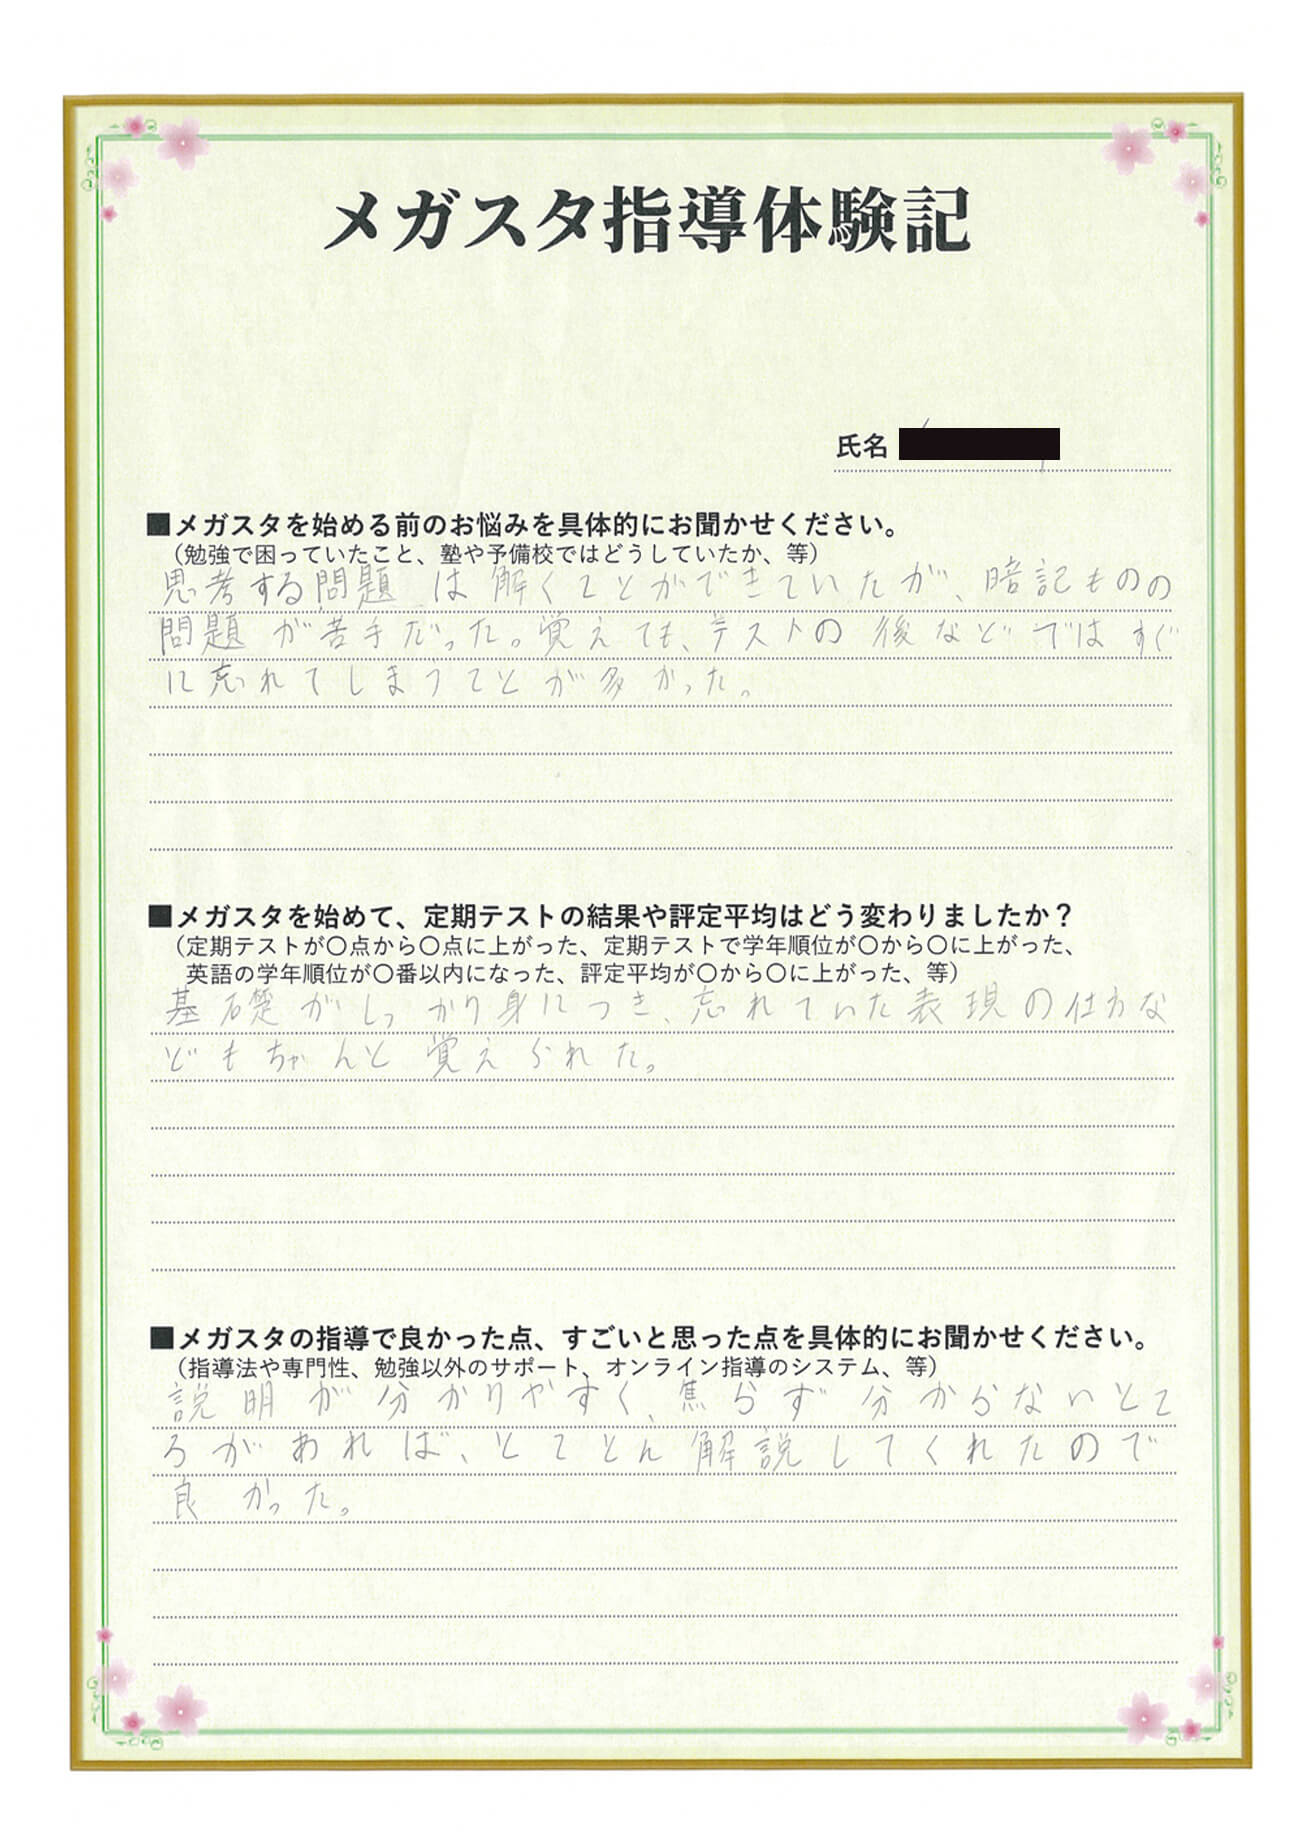 メガスタ指導体験記
氏名
■メガスタを始める前のお悩みを具体的にお聞かせください。
（勉強で困っていたこと、塾や予備校ではどうしていたか、等）
思考する問題は解くことができていたが、暗記ものの
問題が苦手だった。覚えても、テストの後などではすぐ
に忘れてしまうことが多かった。
■メガスタを始めて、定期テストの結果や評定平均はどう変わりましたか？
（定期テストが〇点から〇点に上がった、定期テストで学年順位が〇から〇に上がった、
英語の学年順位が〇番以内になった、評定平均が〇から〇に上がった、等）
基礎がしっかり身につき、忘れていた表現の仕方な
どもちゃんと覚えられた。
■メガスタの指導で良かった点、すごいと思った点を具体的にお聞かせください。
（指導法や専門性、勉強以外のサポート、オンライン指導のシステム、等）
説明が分かりやすく、焦らず分からないとこ
ろがあれば、とことん解説してくれたので
良かった。